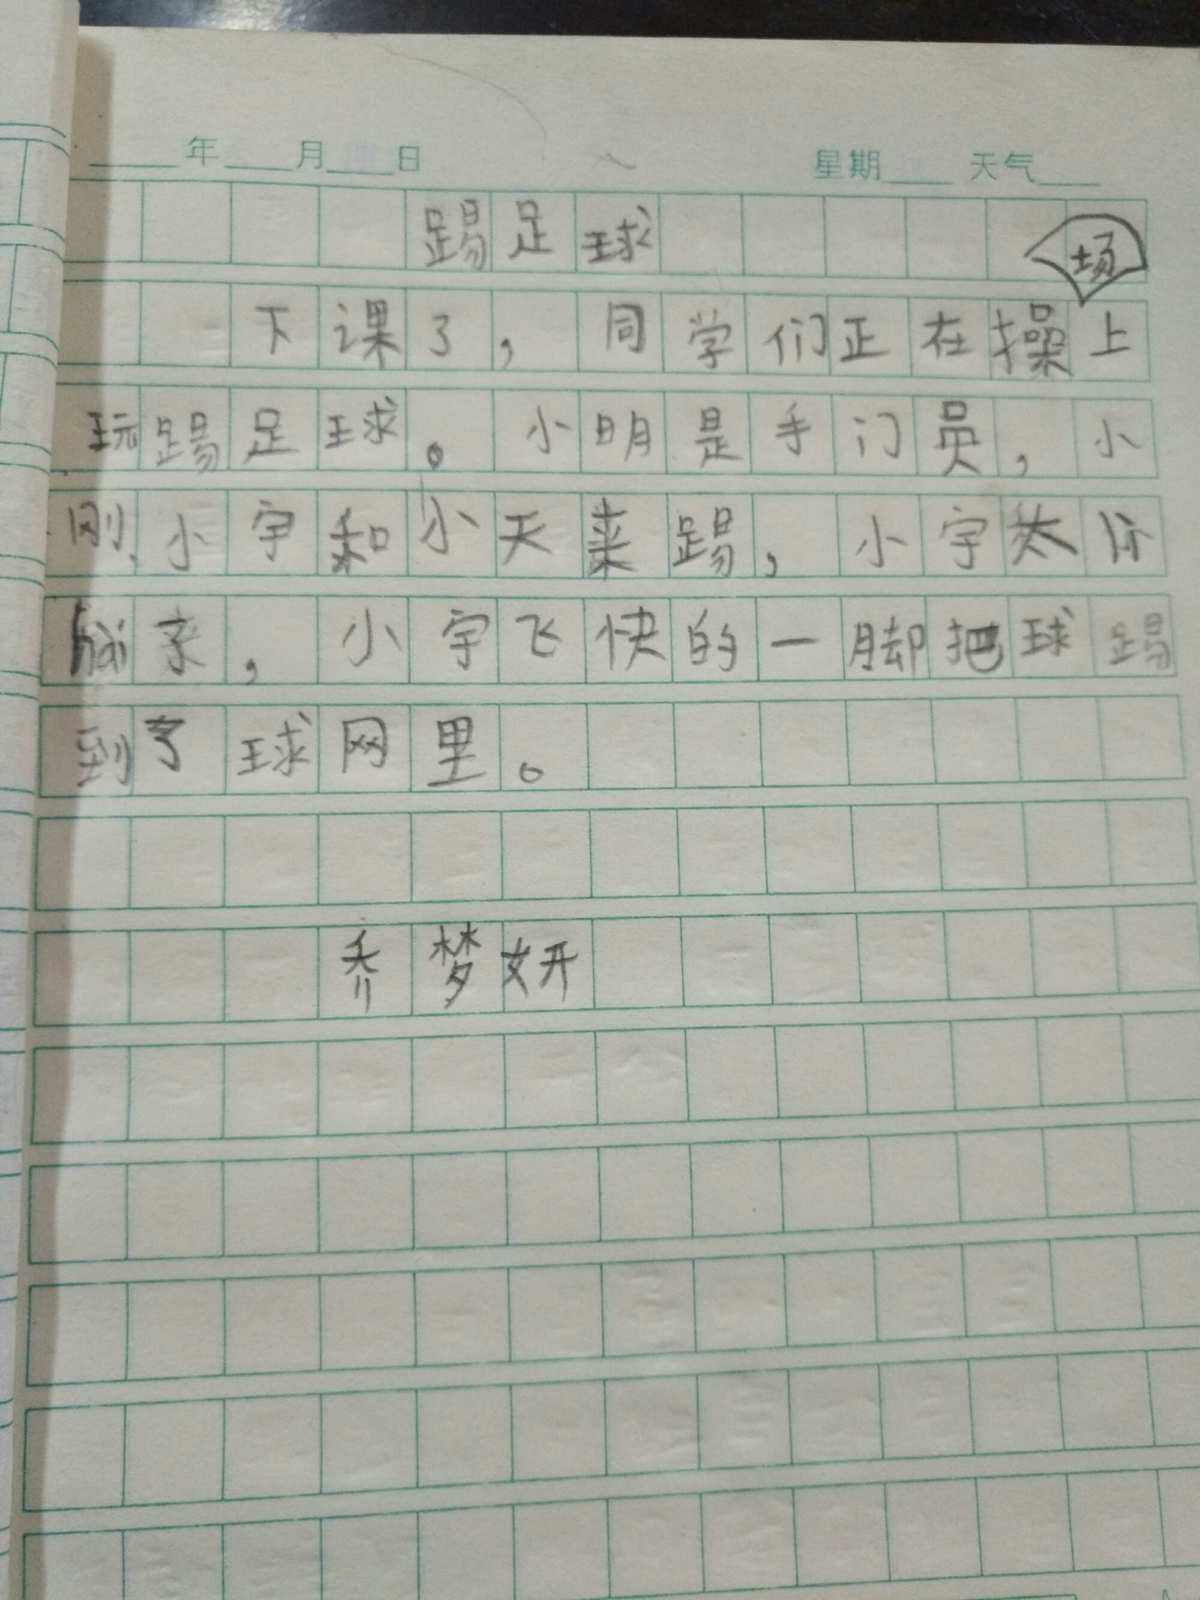 年 月 日 星期 天气
踢足球
下课了，同学们正在操场上
玩踢足球。小明是手门员，小
刚、小宇和小天来踢，小宇太
，小宇飞快的一脚把球踢
到了球网里。
乔梦妍